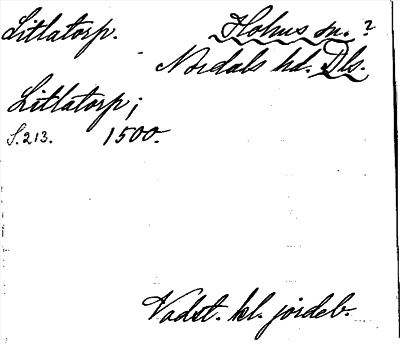 Litlatorp. Holms sn.?
Nordals hd. Dls.
Litlatorp;
S. 213. 1500.
Vadst. kl. jordeb.